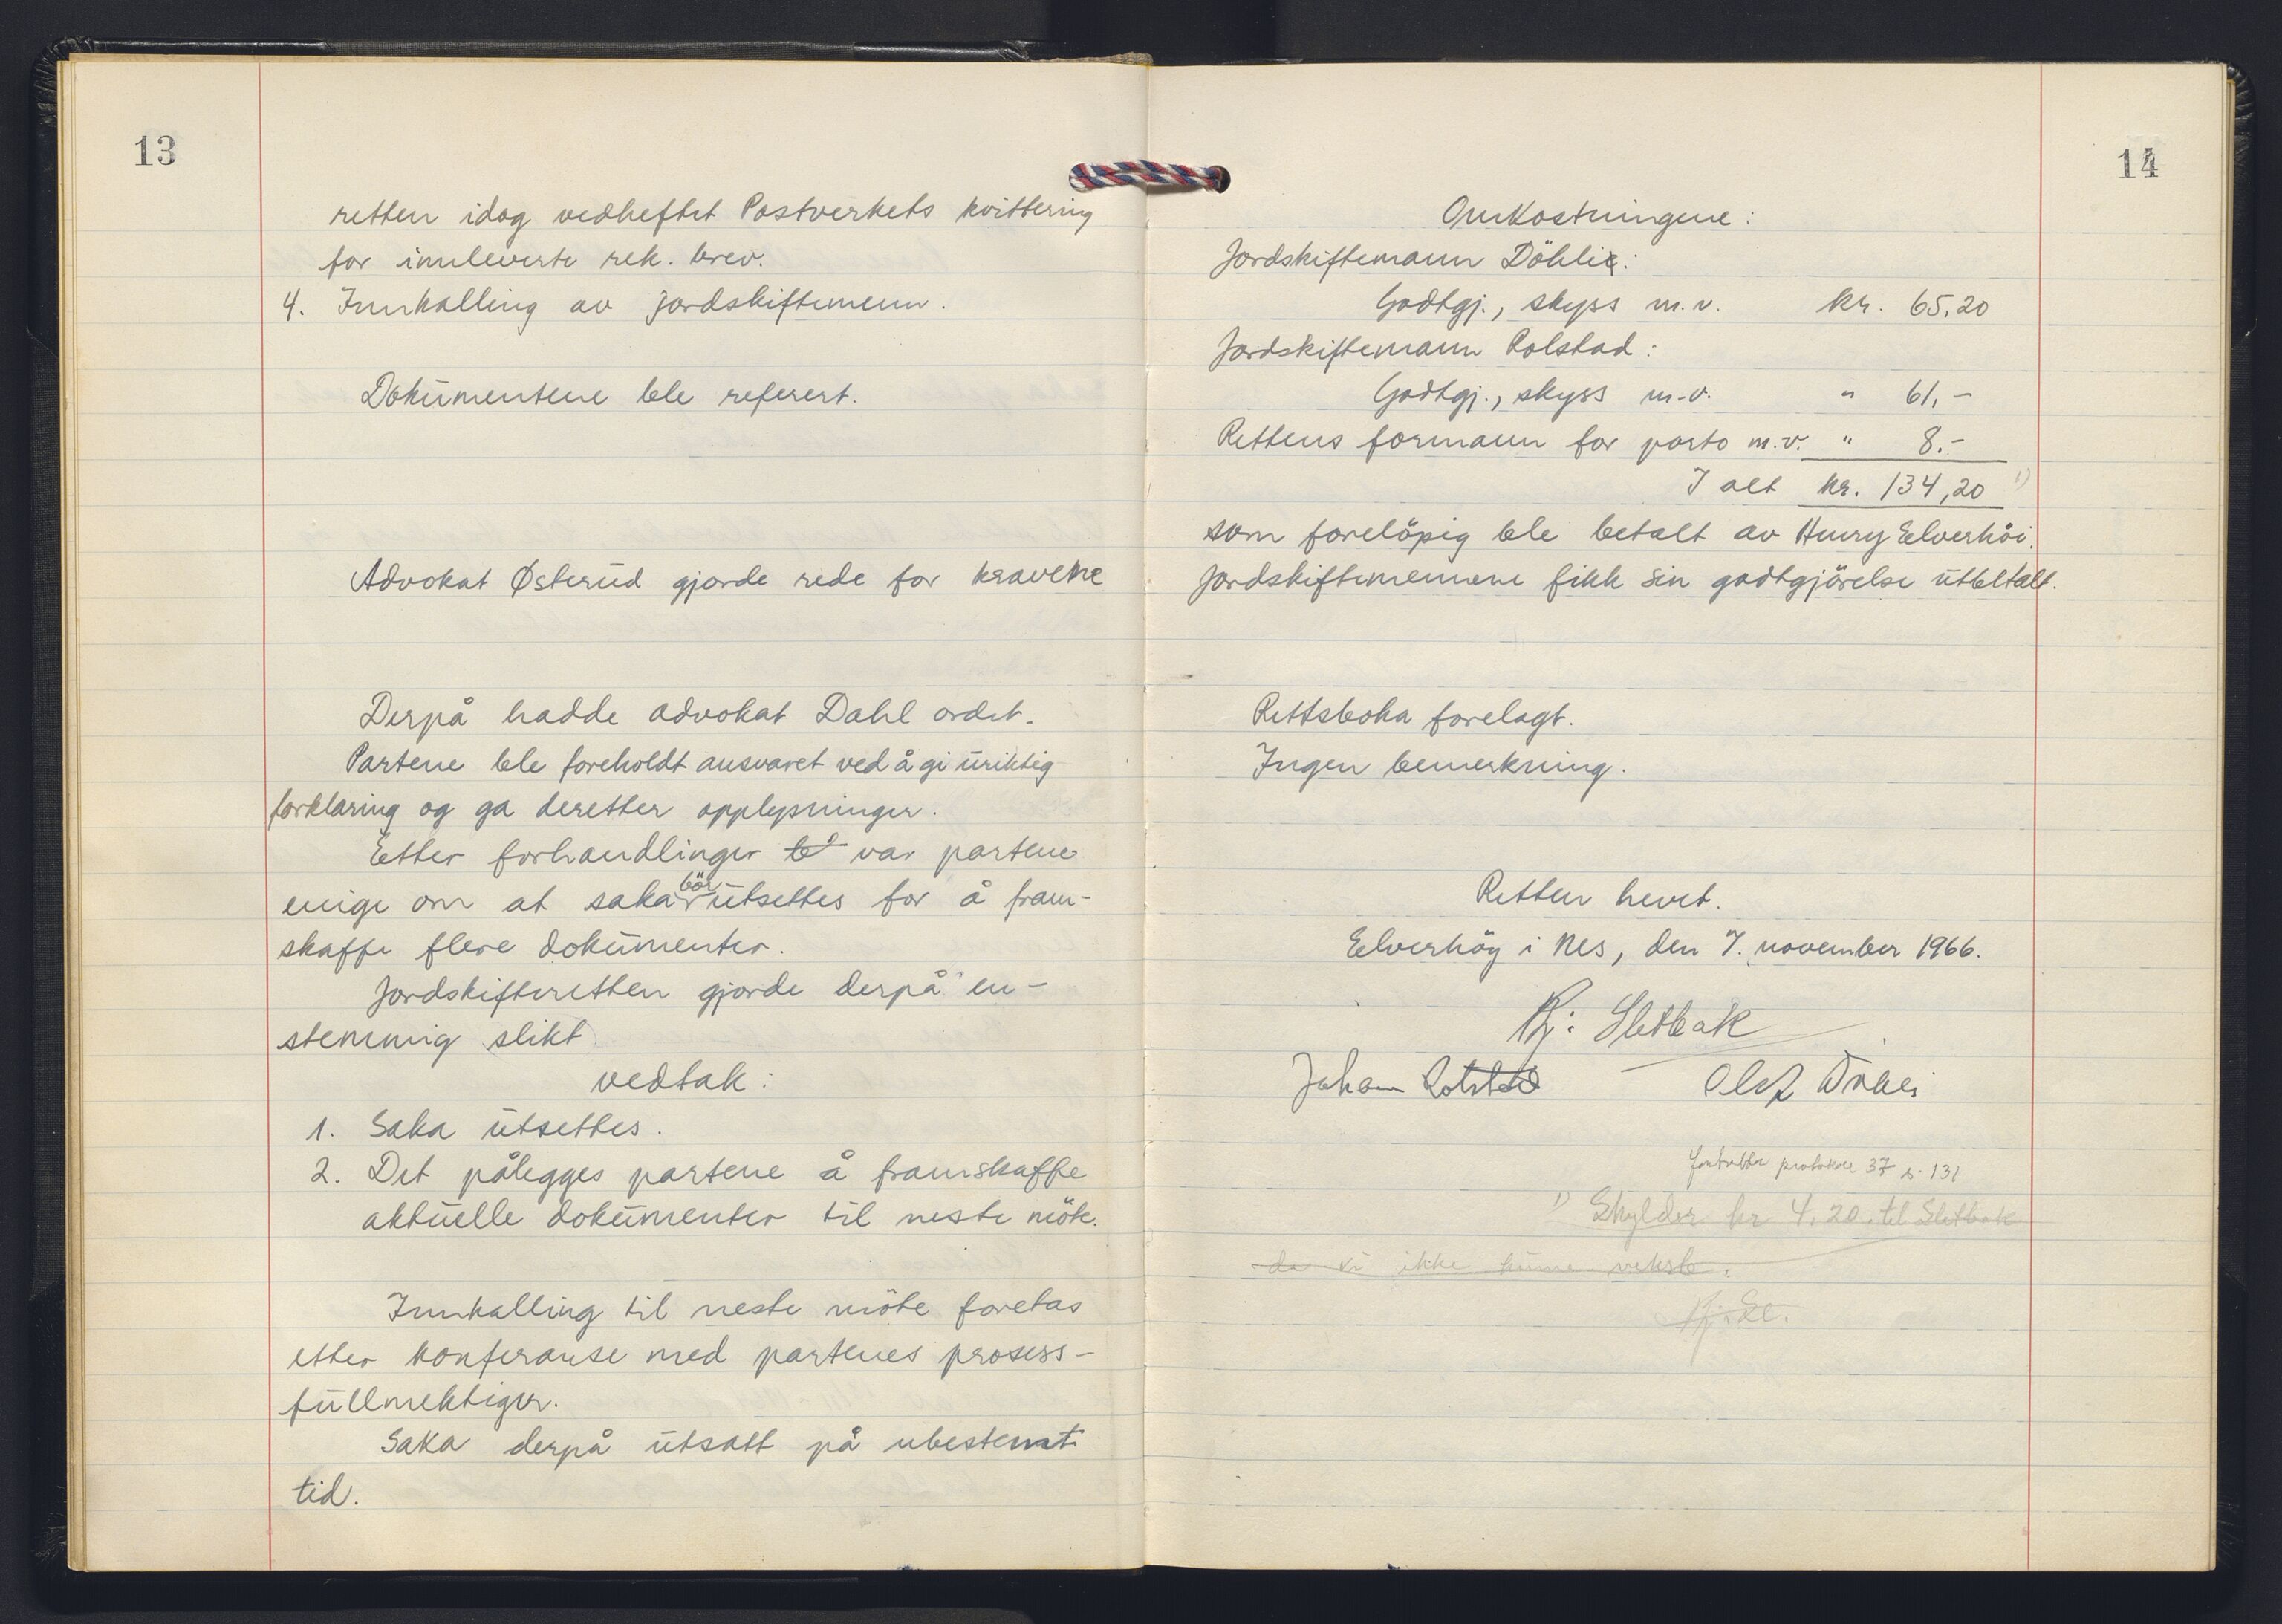 13
retten idag vedheftet Postverkets kvittering
for innleverte rek. brev.
4. Innkalling av jordskiftemenn.
Dokumentene ble referert.
Advokat Østerud gjorde rede for kravene
Derpå hadde advokat Dahl ordet.
Partene ble foreholdt ansvaret ved å gi uriktig
forklaring og ga deretter opplysninger.
Etter forhandlinger var partene
enige om at saka bör utsettes for å fram-
skaffe flere dokumenter.
Jordskifteretten gjorde derpå en-
stemmig slikt
vedtak:
1. Saka utsettes.
2. Det pålegges partene å framskaffe
aktuelle dokumenter til neste möte.
Innkalling til neste möte foretas
etter konferanse med partenes prosess-
fullmektiger.
Saka derpå utsatt på ubestemt
tid.
14
Omkostningene:
Jordskiftemann Döhli:
Godtgj., skyss m.v. kr. 65,20
Jordskiftemann Rolstad:
Godtgj., skyss m.v. " 61,-
Rettens formann for porto m.v. " 8.-
I alt kr. 134,20 1)
som forelöpig ble betalt av Henry Elverhöi.
Jordskiftemennene fikk sin godtgjörelse utbetalt.
Rettsboka forelagt.
Ingen bemerkning.
Retten hevet.
Elverhöy i Nes, den 7. november 1966.
Kj: Sletbak
Johan Rolstad Olaf Döhli
protokoll 37 s. 131
1) Skylder kr 4.20 til Sletbak
da vi ikke kunne veksle.